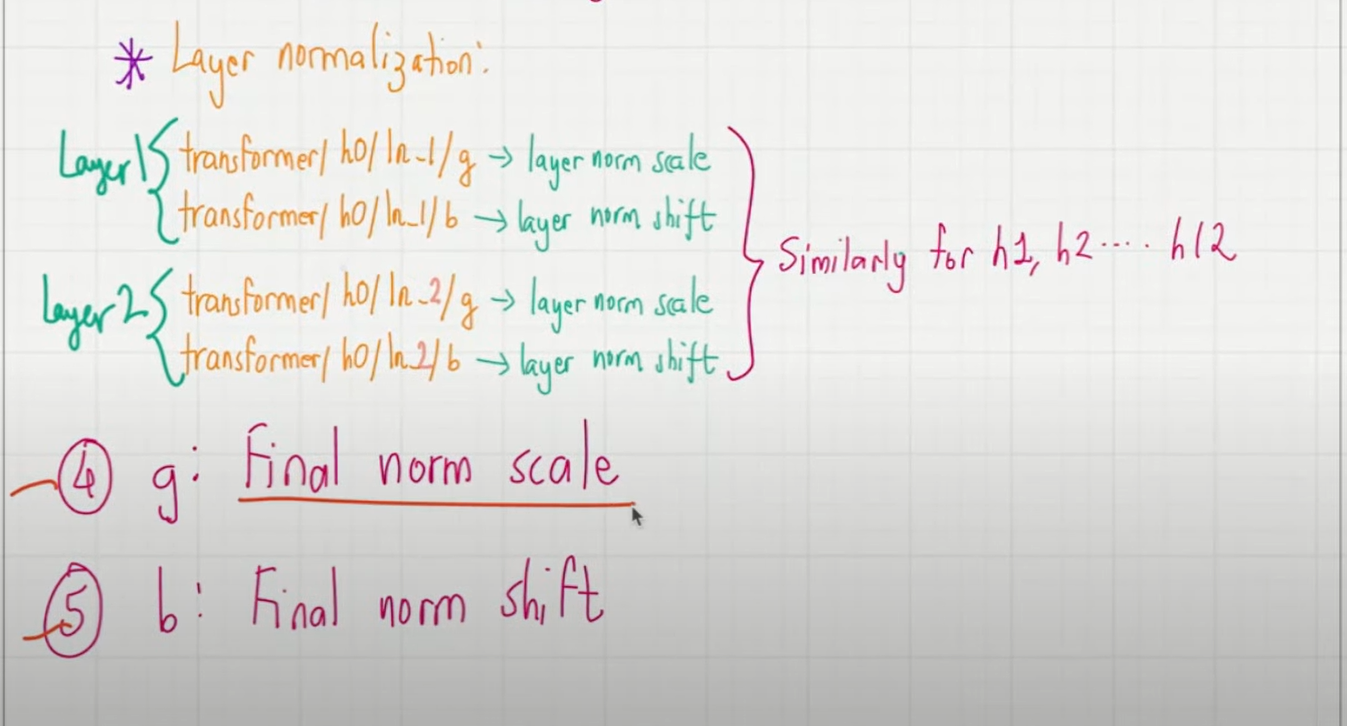 * Layer normalization:
Layer 1 { transformer/ h0/ ln_1/g → layer norm scale
transformer/ h0/ ln_1/b → layer norm shift
Similarly for h1, h2 .... h12
Layer 2 { transformer/ h0/ ln_2/g → layer norm scale
transformer/ h0/ ln_2/b → layer norm shift
④ g: Final norm scale
⑤ b: Final norm shift